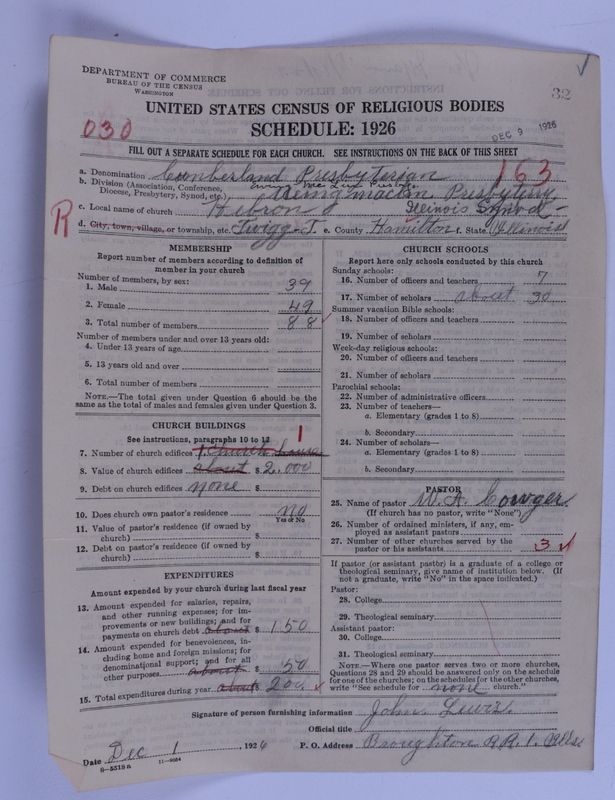 DEPARTMENT OF COMMERCE
BUREAU OF THE CENSUS
WASHINGTON
32
UNITED STATES CENSUS OF RELIGIOUS BODIES
SCHEDULE: 1926
DEC 9 1926
030
FILL OUT A SEPARATE SCHEDULE FOR EACH CHURCH. SEE INSTRUCTIONS ON THE BACK OF THIS SHEET
163
a. Denomination Cumberland Presbyterian
b. Division (Association, Conference, Diocese, Presbytery, Synod, etc.) Presbytery
Illinois Synod
c. Local name of church Hebron
R
d. City, town, village, or township, etc. Twigg. T. e. County Hamilton f. State Illinois
MEMBERSHIP
Report number of members according to definition of
member in your church
Number of members, by sex:
1. Male 39
2. Female 49
3. Total number of members 88
Number of members under and over 13 years old:
4. Under 13 years of age
5. 13 years old and over
6. Total number of members
NOTE.—The total given under Question 6 should be the
same as the total of males and females given under Question 3.
CHURCH BUILDINGS
See instructions, paragraphs 10 to 12
7. Number of church edifices 1 Church house 1
8. Value of church edifices about $ 2,000
9. Debt on church edifices none $
10. Does church own pastor's residence no
Yes or No
11. Value of pastor's residence (if owned by
church) $
12. Debt on pastor's residence (if owned by
church) $
EXPENDITURES
Amount expended by your church during last fiscal year
13. Amount expended for salaries, repairs,
and other running expenses; for im-
provements or new buildings; and for
payments on church debt about $ 150
14. Amount expended for benevolences, in-
cluding home and foreign missions; for
denominational support; and for all
other purposes about $ 50
15. Total expenditures during year about $ 200
CHURCH SCHOOLS
Report here only schools conducted by this church
Sunday schools:
16. Number of officers and teachers 7
17. Number of scholars about 30
Summer vacation Bible schools:
18. Number of officers and teachers
19. Number of scholars
Week-day religious schools:
20. Number of officers and teachers
21. Number of scholars
Parochial schools:
22. Number of administrative officers
23. Number of teachers—
a. Elementary (grades 1 to 8)
b. Secondary
24. Number of scholars—
a. Elementary (grades 1 to 8)
b. Secondary
PASTOR
25. Name of pastor W. A. Cowger
(If church has no pastor, write "None")
26. Number of ordained ministers, if any, em-
ployed as assistant pastors
27. Number of other churches served by the
pastor or his assistants 3
If pastor (or assistant pastor) is a graduate of a college or
theological seminary, give name of institution below. (If
not a graduate, write "No" in the space indicated.)
Pastor:
28. College
29. Theological seminary
Assistant pastor:
30. College
31. Theological seminary
NOTE.—Where one pastor serves two or more churches,
Questions 28 and 29 should be answered only on the schedule
for one of the churches; on the schedules for the other churches,
write "See schedule for none church."
Signature of person furnishing information John Lewis.
Official title
Date Dec 1, 1926 P. O. Address Broughton R.R. 1. Ills.
8—5518a 11—9064